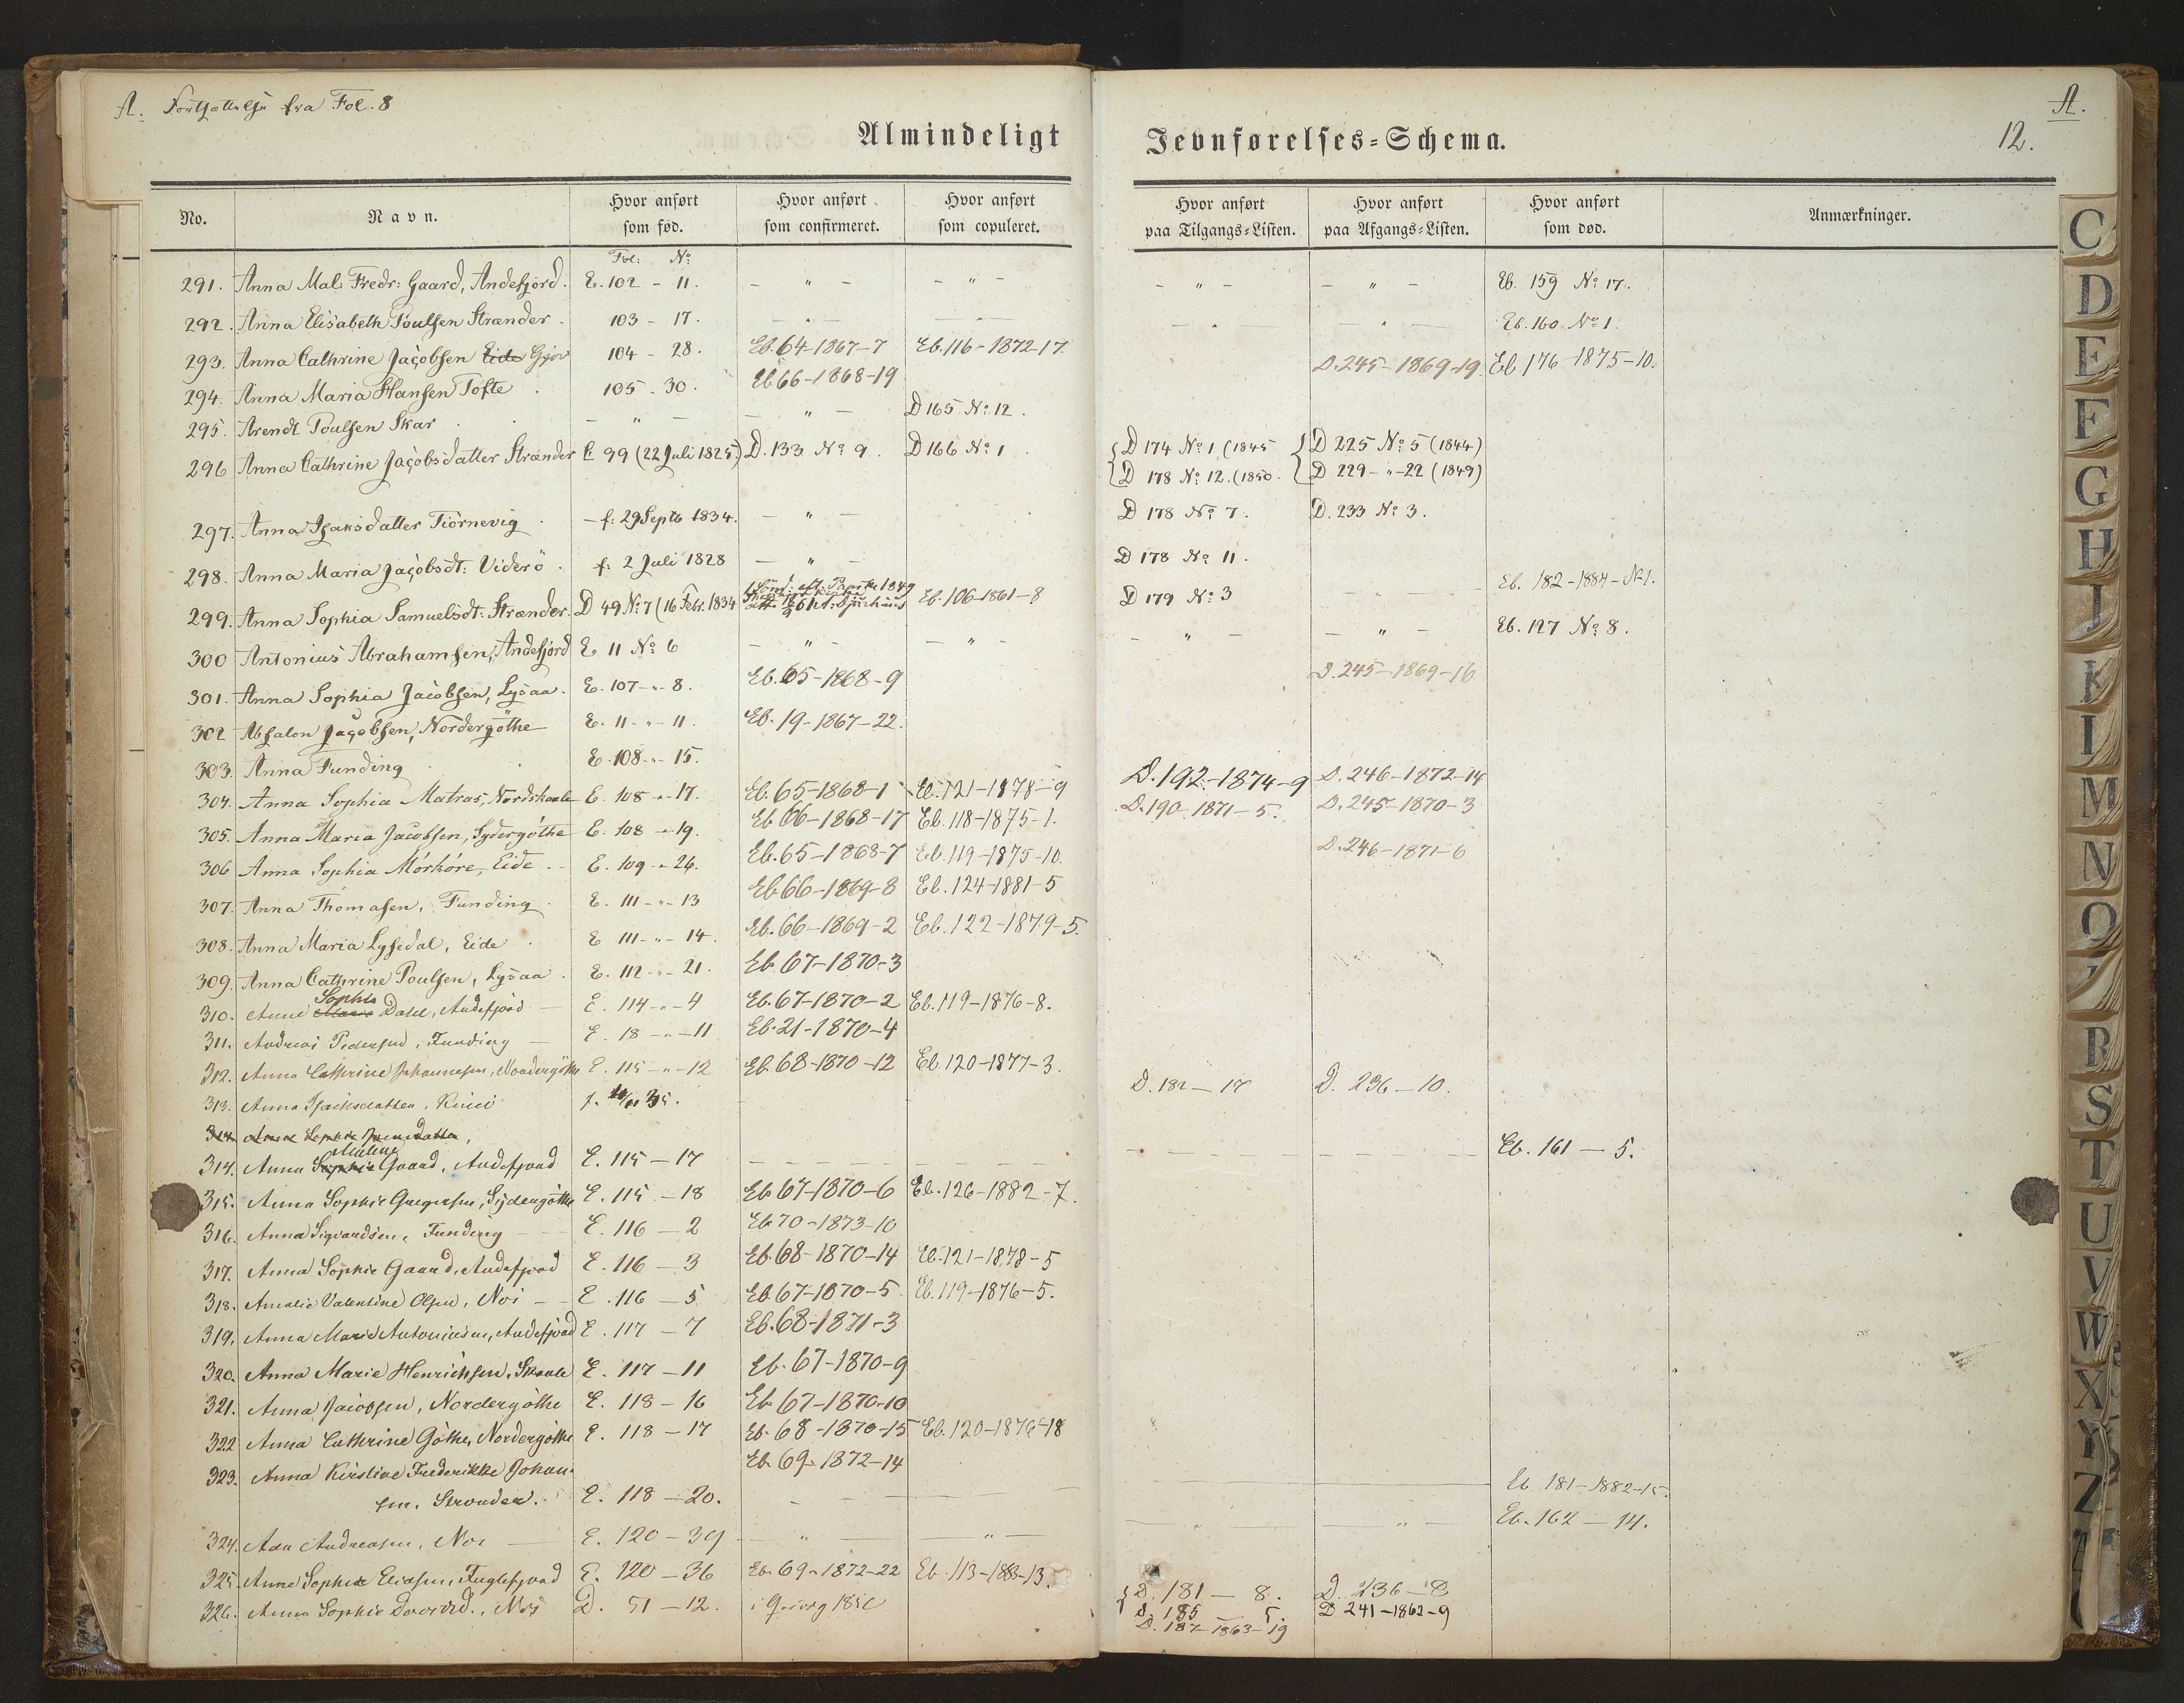 A. Fortsættelse fra Fol. 8
A.
12.
Almindeligt Jevnførelses=Schema.
No. Navn. Hvor anført som fød. Hvor anført som confirmeret. Hvor anført som copuleret. Hvor anført paa Tilgangs=Listen. Hvor anført paa Afgangs=Listen. Hvor anført som død. Anmærkninger.
Fol: No:
291. Anna Mal: Fredr: Gaard, Andefjord. E. 102 - 11. - " - - " - - " - - " - Eb. 159 No: 17.
292. Anna Elisabeth Poulsen Strænder. 103 - 17. - " - - " - - " - - " - Eb. 160 No 1.
293. Anna Cathrine Jacobsen Eide Gjov 104 - 28. Eb. 64-1867-7 Eb. 116-1872-17 D. 245-1869-19. Eb 176 1875-10.
294. Anna Maria Hansen Tofte 105 - 30. Eb 66-1868-19
295. Arendt Poulsen Skar - " - - " - D 165 No: 12.
296. Anna Cathrine Jacobsdatter Strænder E 99 (22 Juli 1825) D. 133 No 9. D 166 No 1. D 174 No 1 (1845 D 225 No 5 (1844)
D 178 No: 12. (1850. D 229 - " - 22 (1849)
297. Anna Isaksdatter Tiörnevig - f: 29 Septb 1834. - " - D 178 No 7. D. 233 No 3.
298. Anna Maria Jacobsdt: Viderö. f: 2 Juli 1828 - " - D 178 No 11.
299. Anna Sophia Samuelsdt: Strænder. D 49 No: 7 (16 Febr. 1834 Eb. 106-1861-8 D 179 No: 3 Eb. 182-1884-No 1.
300 Antonius Abrahamsen, Andefjord E 11 No: 6 - " - - " - - " - - " - Eb. 127 No 8.
301. Anna Sophia Jacobsen, Lysaa. E. 107 - " - 8. Eb. 65-1868-9 D. 245-1869-16
302 Absalon Jacobsen, Nordergöthe E. 11 - " - 11. Eb. 19-1867-22.
303. Anna Funding E. 108 - " - 15.
304. Anna Sophia Matras, Nordskaale E. 108 - " - 17. Eb. 65-1868-1 Eb. 121-1878-9 D. 192-1874-9 D. 246-1872-14
305. Anna Maria Jacobsen, Sydergöthe E. 108 - " - 19. Eb 66-1868-17 Eb. 118-1875-1. D. 190-1871-5. D. 245-1870-3
306 Anna Sophia Mörköre, Eide E. 109 - " - 26. Eb. 65-1868-7 Eb. 119-1875-10. D. 246-1871-6
307. Anna Thomasen, Funding. E. 111 - " - 13 Eb 66-1869-8 Eb. 124-1881-5
308. Anna Maria Lysedal, Eide E 111 - " - 14. Eb. 66-1869-2 Eb. 122-1879-5.
309. Anna Cathrine Poulsen, Lysaa. E. 112 - " - 21. Eb 67-1870-3
310. Anne Sophie Dahl, Andefjord E. 114 - " - 4 Eb. 67-1870-2 Eb. 119-1876-8.
311. Andreas Pedersen, Funding E. 18 - " - 11 Eb. 21-1870-4
312. Anna Cathrine Johannesen, Nordergöthe E. 115 - " - 12 Eb. 68-1870-12 Eb. 120-1877-3.
313. Anna Isaksdatter, f. D. 182 - 17 D. 236 - 10.
314. Anne Sophie
314. Anna Maline Gaard, Andefjord E. 115 - 17 Eb. 161 - 5.
315. Anna Sophie Gregersen, Sydergöthe E. 115 - 18 Eb 67-1870-6 Eb. 126-1882-7.
316. Anna Sigvardsen, Funding E. 116 - 2 Eb 70-1873-10
317. Anna Sophie Gaard, Andefjord E. 116 - 3 Eb. 68-1870-14 Eb. 121-1878-5
318. Amalie Valentine Olsen, Noi E. 116 - 5 Eb. 67-1870-5 Eb. 119-1876-5.
319. Anna Marie Antoniusen, Andefjord E. 117 - 7 Eb. 68-1871-3
320. Anna Marie Henrichsen, Skaale E. 117 - 11 Eb. 67-1870-9
321. Anna Jacobsen, Nordergöthe E. 118 - 16 Eb 67-1870-10
322 Anna Cathrine Göthe, Nordergöthe E. 118 - 17 Eb. 68-1870-15 Eb. 120-1876-18
323. Anna Kirstine Frederikke Johan-
sen, Strender. E. 118 - 20. Eb. 69-1872-14 Eb 181-1882-15.
324. Ada Andreasen, Noi E. 120 - 39 - " - - " - - " - - " - Eb. 162 - 14.
325. Anne Sophie Eliasen, Fuglefjord E. 120 - 36 Eb. 69-1872-22 Eb. 113-1883-13.
326. Anna Sophie Noi D. 51 - 12. D. 181 - 8. D. 236 - 8
D. 185 5. D 241-1862-9
D. 187-1863-19
C
D
E
F
G
H
J
K
L
M
N
O
R
S
T
U
V
W
X
Y
Z